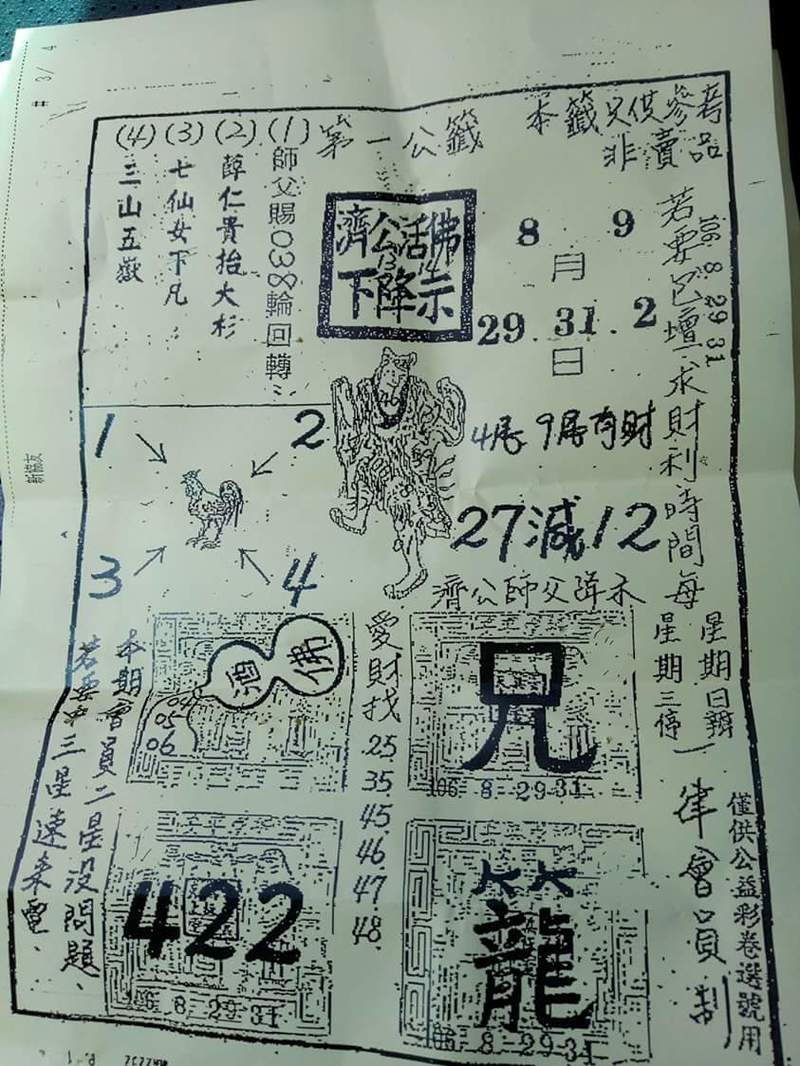 本籤只供參考
非賣品
106.8.29 31
若要包壇求財利時間每
星期日辦
星期三停
一律會員制
僅供公益彩卷選號用
第一公籤
濟公活佛
13 14
下降示
8 9
月
29.31.2
日
(1)師父賜038輪回轉
(2)薛仁貴抬大杉
(3)七仙女下凡
(4)三山五嶽
46
4尾 9尾有財
27減12
濟公師父降示
1
2
3
4
酒佛
04
05
06
愛財找
25
35
45
46
47
48
兄
106.8-29-31
422
106.8-29-31
籠
106.8-29-31
本期會員二星沒問題、
若要中三星速來電、